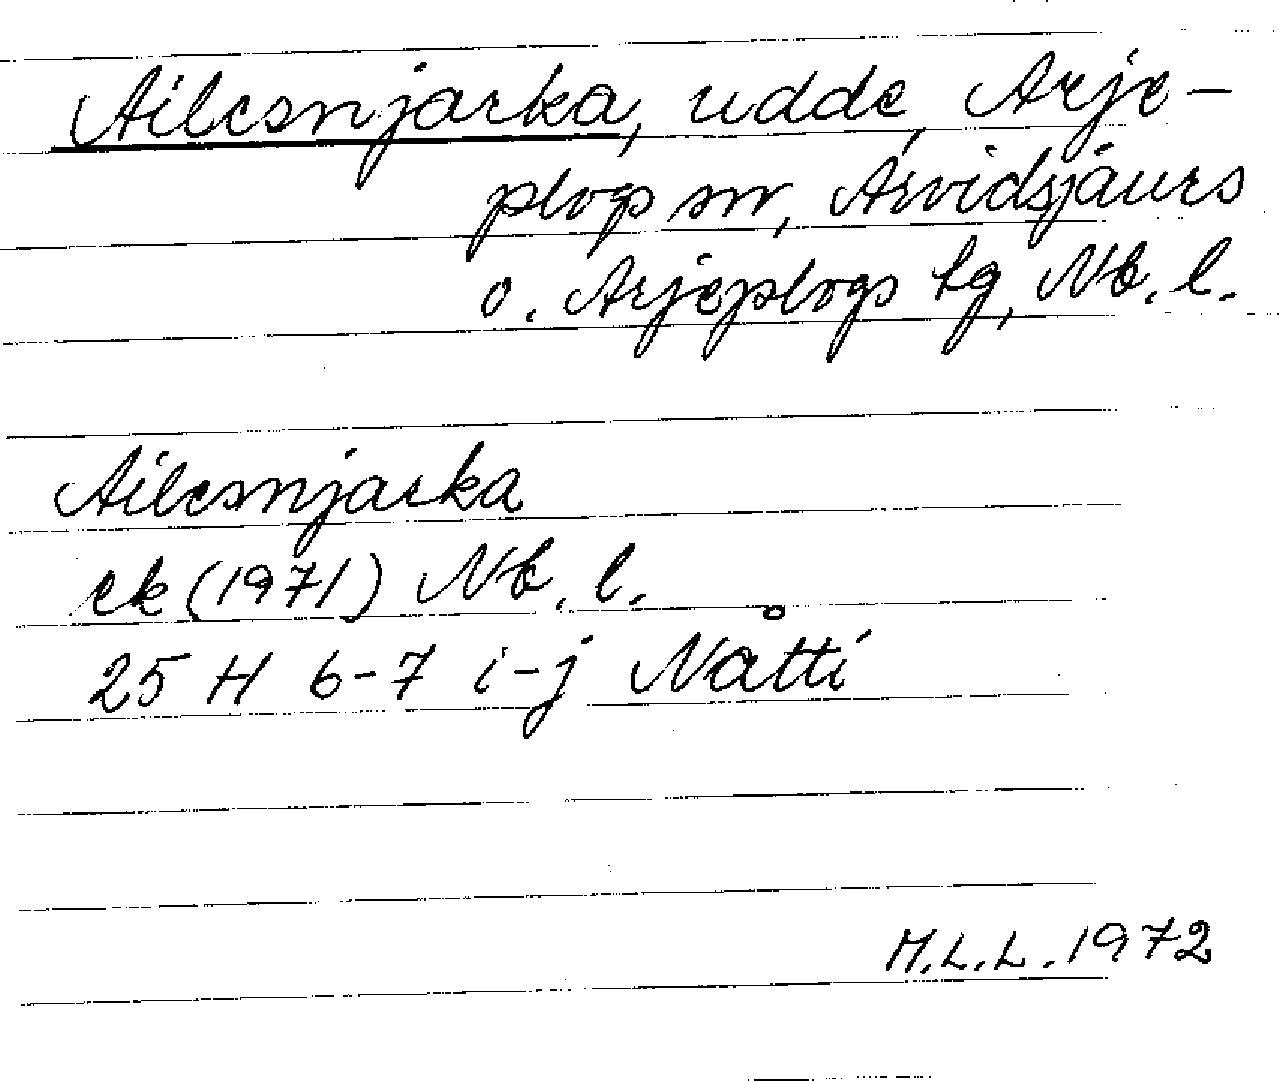 Ailesnjarka, udde, Arje-
plogs sn, Arvidsjaurs
o. Arjeplogs tg, Nb. l.
Ailesnjarka
ek (1971) Nb. l.
25 H 6-7 i-j Nåtti
M.L.L. 1972